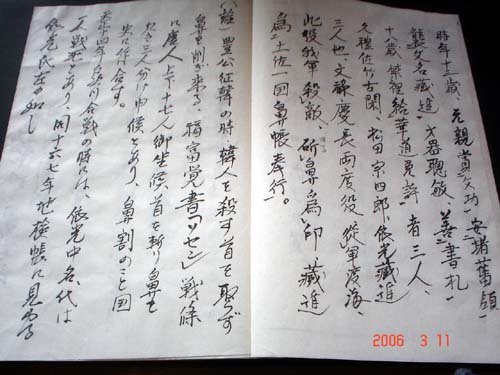 時年十三歳、元親賞父功、安堵舊領、
襲父名藏進、大器聰敏、善書札、
十八歳 筆道免許者三人、
久禮佐竹古関、松田宗四郎、依光藏進
三人也 文禄慶長兩度役、從軍渡海、
此役我軍殺敵、斫鼻為印 藏進
為土佐一国鼻帳奉行。
(註) 豊公征韓の時 韓人を殺す首を取らず
鼻を削ぎ来る 福富覚書「コツセン」戦條
に唐人上下十七人御坐候首を斬り鼻を
かき三人分け申候とあり、鼻割のこと国
史に符合す。
天正十四年 川合戦の時には、依光中名代は
一人戦死とあり、同十六七年地検帳に見ゆる
依光氏左の如し
2006 3 11